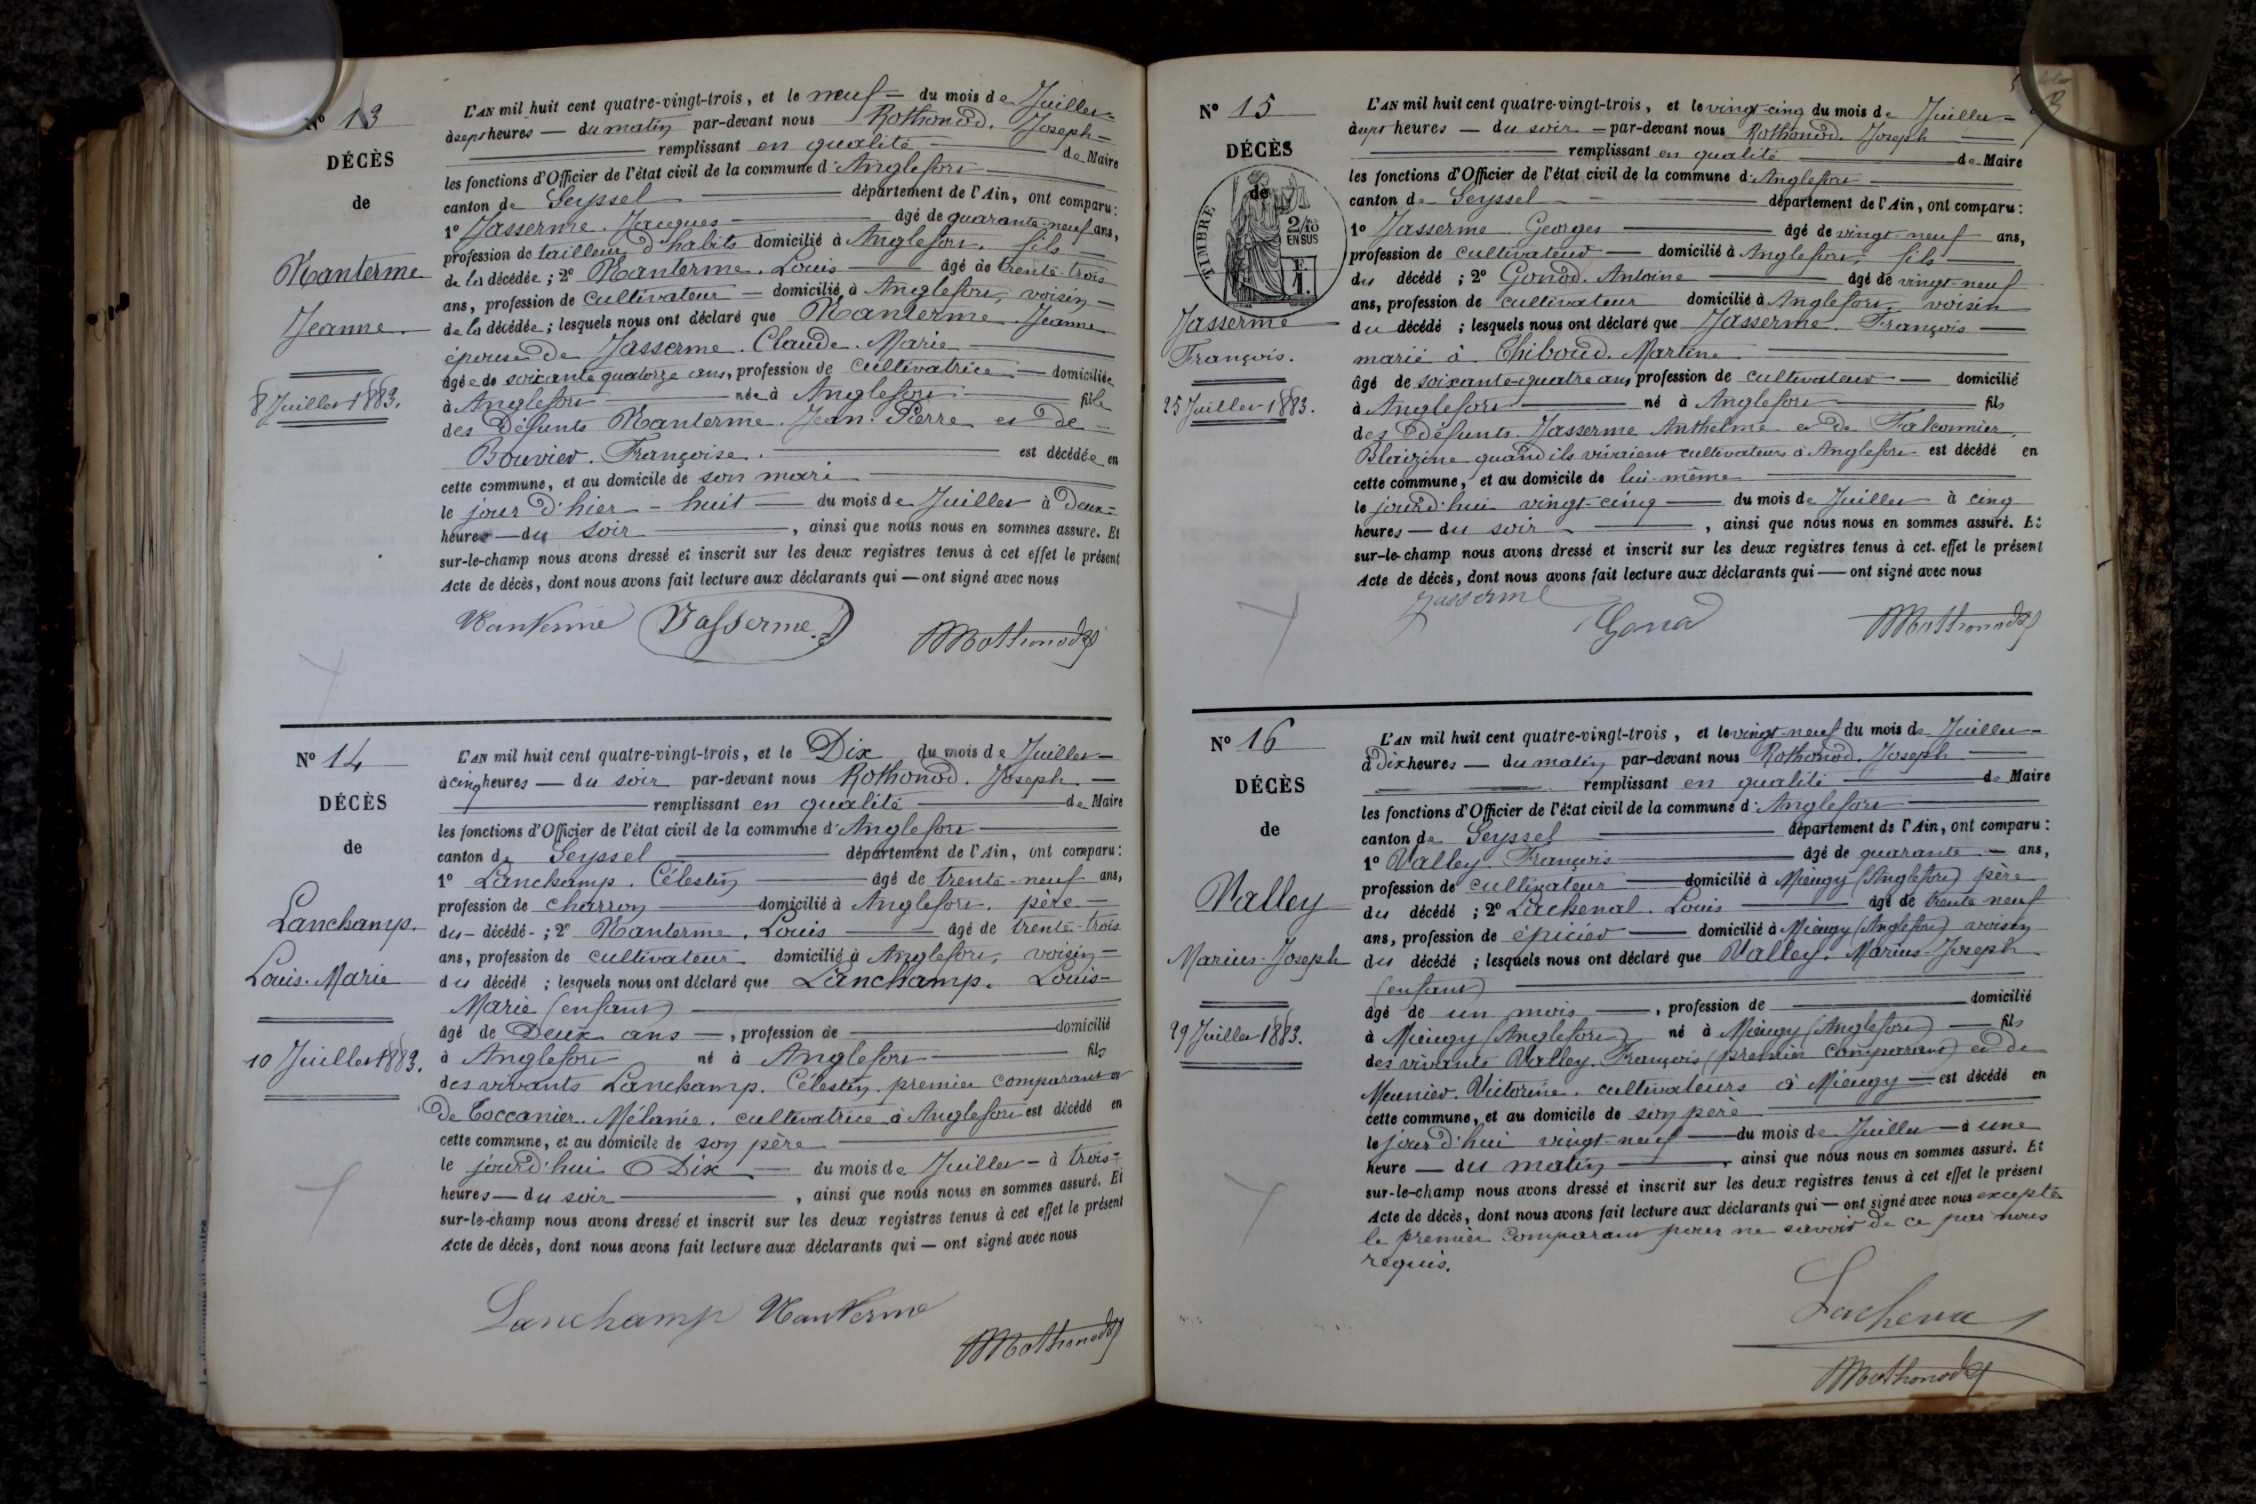 N° 13
DÉCÈS
de
Nanterme
Jeanne
8 Juillet 1883.
L'AN mil huit cent quatre-vingt-trois, et le neuf du mois de Juillet
à sept heures — du matin par-devant nous Rothonod. Joseph
remplissant en qualité de Maire
les fonctions d'Officier de l'état civil de la commune d'Anglefort
canton de Seyssel département de l'Ain, ont comparu :
1° Jasserme. Jacques âgé de quarante-neuf ans,
profession de tailleur d'habits domicilié à Anglefort. fils
de la décédée ; 2° Nanterme. Louis âgé de trente-trois
ans, profession de cultivateur domicilié à Anglefort, voisin
de la décédée ; lesquels nous ont déclaré que Nanterme. Jeanne
épouse de Jasserme. Claude. Marie
âgée de soixante quatorze ans, profession de cultivatrice domiciliée
à Anglefort née à Anglefort fille
des défunts Nanterme. Jean. Pierre et de
Bouvier. Françoise. est décédée en
cette commune, et au domicile de son mari
le jour d'hier - huit du mois de Juillet à deux
heures — du soir, ainsi que nous nous en sommes assuré. Et
sur-le-champ nous avons dressé et inscrit sur les deux registres tenus à cet effet le présent
Acte de décès, dont nous avons fait lecture aux déclarants qui — ont signé avec nous
Nanterme Jasserme Rothonod
N° 14
DÉCÈS
de
Lanchamp.
Louis. Marie
10 Juillet 1883.
L'AN mil huit cent quatre-vingt-trois, et le Dix du mois de Juillet
à cinq heures — du soir par-devant nous Rothonod. Joseph.
remplissant en qualité de Maire
les fonctions d'Officier de l'état civil de la commune d'Anglefort
canton de Seyssel département de l'Ain, ont comparu :
1° Lanchamp. Célestin âgé de trente-neuf ans,
profession de charron domicilié à Anglefort. père
du décédé ; 2° Nanterme. Louis âgé de trente-trois
ans, profession de cultivateur domicilié à Anglefort, voisin
du décédé ; lesquels nous ont déclaré que Lanchamp. Louis-
Marie (enfant)
âgé de Deux ans, profession de domicilié
à Anglefort né à Anglefort fils
des vivants Lanchamp. Célestin. premier comparant et
de Coccanier. Mélanie. cultivatrice à Anglefort est décédé en
cette commune, et au domicile de son père
le jourd'hui Dix du mois de Juillet à trois
heures — du soir, ainsi que nous nous en sommes assuré. Et
sur-le-champ nous avons dressé et inscrit sur les deux registres tenus à cet effet le présent
Acte de décès, dont nous avons fait lecture aux déclarants qui — ont signé avec nous
Lanchamp Nanterme
Rothonod
N° 15
DÉCÈS
de
TIMBRE
2/10
EN SUS
Jasserme
François.
25 Juillet 1883.
L'AN mil huit cent quatre-vingt-trois, et le vingt-cinq du mois de Juillet
à sept heures — du soir par-devant nous Rothonod. Joseph
remplissant en qualité de Maire
les fonctions d'Officier de l'état civil de la commune d'Anglefort
canton de Seyssel département de l'Ain, ont comparu :
1° Jasserme Georges âgé de vingt-neuf ans,
profession de cultivateur domicilié à Anglefort, fils
du décédé ; 2° Gonod. Antoine âgé de vingt-neuf
ans, profession de cultivateur domicilié à Anglefort, voisin
du décédé ; lesquels nous ont déclaré que Jasserme. François
marié à Thiboud. Martine
âgé de soixante-quatre ans profession de cultivateur domicilié
à Anglefort né à Anglefort fils
des défunts Jasserme Anthelme et de Falconnier.
Blaizine quand ils vivaient cultivateurs à Anglefort est décédé en
cette commune, et au domicile de lui-même
le jourd'hui vingt-cinq du mois de Juillet à cinq
heures — du soir, ainsi que nous nous en sommes assuré. Et
sur-le-champ nous avons dressé et inscrit sur les deux registres tenus à cet effet le présent
Acte de décès, dont nous avons fait lecture aux déclarants qui — ont signé avec nous
Jasserme Gonod Rothonod
N° 16
DÉCÈS
de
Valley
Marius-Joseph
29 Juillet 1883.
L'AN mil huit cent quatre-vingt-trois, et le vingt-neuf du mois de Juillet
à Dix heures — du matin par-devant nous Rothonod. Joseph
remplissant en qualité de Maire
les fonctions d'Officier de l'état civil de la commune d'Anglefort
canton de Seyssel département de l'Ain, ont comparu :
1° Valley. François âgé de quarante ans,
profession de cultivateur domicilié à Mieugy (Anglefort) père
du décédé ; 2° Lachenal. Louis âgé de trente neuf
ans, profession de épicier domicilié à Mieugy (Anglefort) voisin
du décédé ; lesquels nous ont déclaré que Valley. Marius-Joseph
(enfant)
âgé de un mois, profession de domicilié
à Mieugy (Anglefort) né à Mieugy (Anglefort) fils
des vivants Valley. François (premier comparant) et de
Meunier. Victorine. cultivateurs à Mieugy est décédé en
cette commune, et au domicile de son père
le jourd'hui vingt-neuf du mois de Juillet à une
heure — du matin, ainsi que nous nous en sommes assuré. Et
sur-le-champ nous avons dressé et inscrit sur les deux registres tenus à cet effet le présent
Acte de décès, dont nous avons fait lecture aux déclarants qui — ont signé avec nous excepté
le premier comparant pour ne savoir de ce par nous
requis.
Lachenal
Rothonod